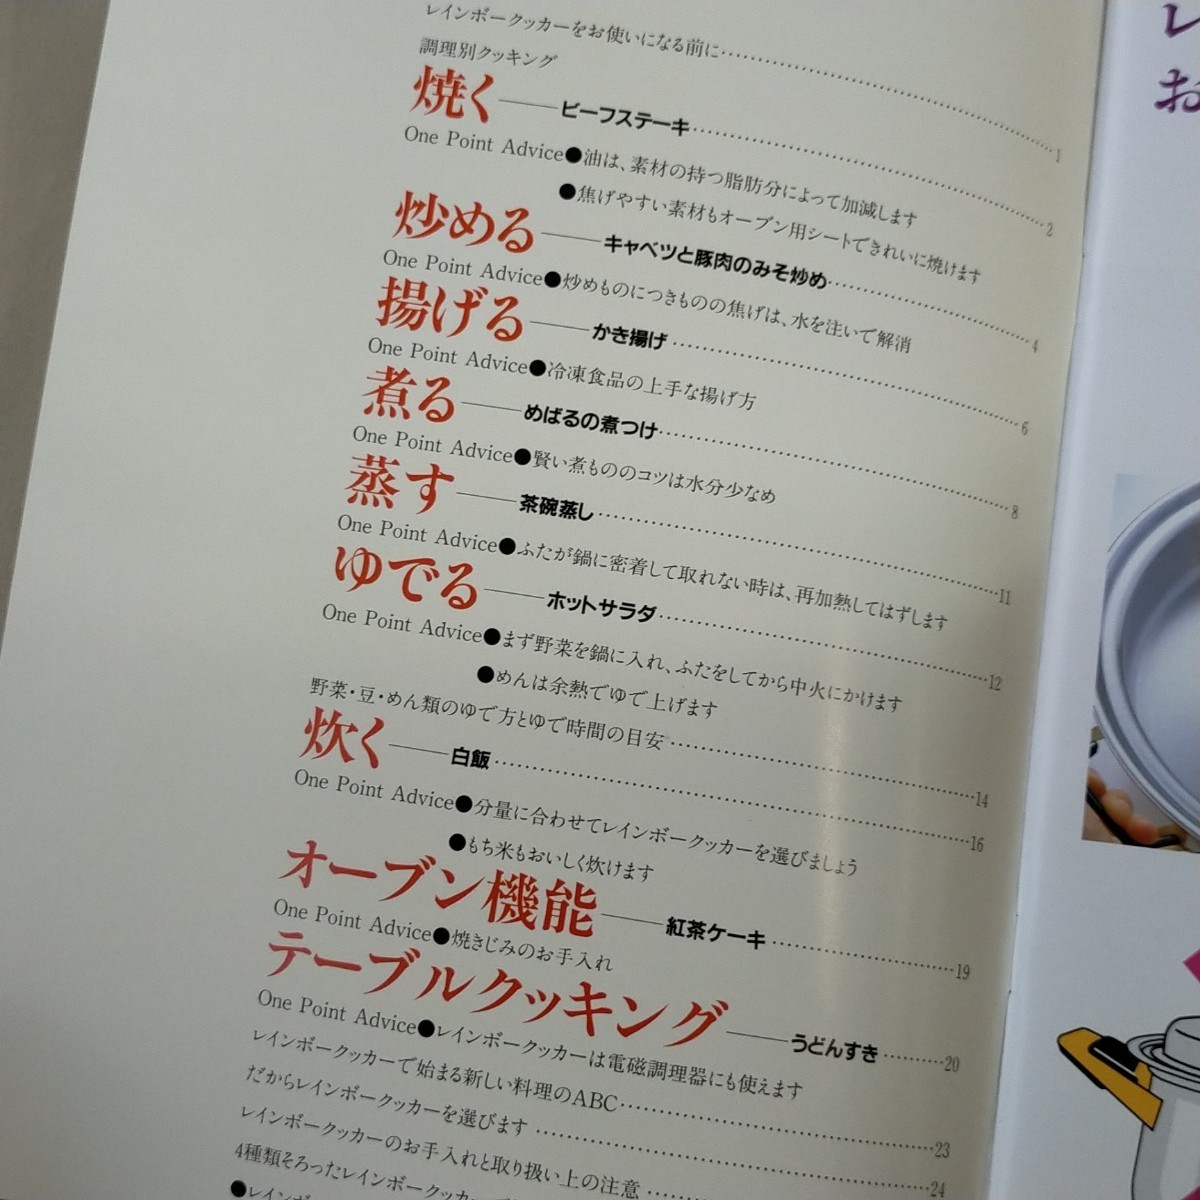 レインボークッカーをお使いになる前に……1
調理別クッキング
焼く――ビーフステーキ……2
One Point Advice●油は、素材の持つ脂肪分によって加減します
●焦げやすい素材もオーブン用シートできれいに焼けます
炒める――キャベツと豚肉のみそ炒め……4
One Point Advice●炒めものにつきものの焦げは、水を注いで解消
揚げる――かき揚げ……6
One Point Advice●冷凍食品の上手な揚げ方
煮る――めばるの煮つけ……8
One Point Advice●賢い煮もののコツは水分少なめ
蒸す――茶碗蒸し……11
One Point Advice●ふたが鍋に密着して取れない時は、再加熱してはずします
ゆでる――ホットサラダ……12
One Point Advice●まず野菜を鍋に入れ、ふたをしてから中火にかけます
●めんは余熱でゆで上げます
野菜・豆・めん類のゆで方とゆで時間の目安……14
炊く――白飯……16
One Point Advice●分量に合わせてレインボークッカーを選びましょう
●もち米もおいしく炊けます
オーブン機能――紅茶ケーキ……19
One Point Advice●焼きじみのお手入れ
テーブルクッキング――うどんすき……20
One Point Advice●レインボークッカーは電磁調理器にも使えます
レインボークッカーで始まる新しい料理のABC……23
だからレインボークッカーを選びます……24
レインボークッカーのお手入れと取り扱い上の注意……
4種類そろったレインボークッカー
●レインボー
レ
お